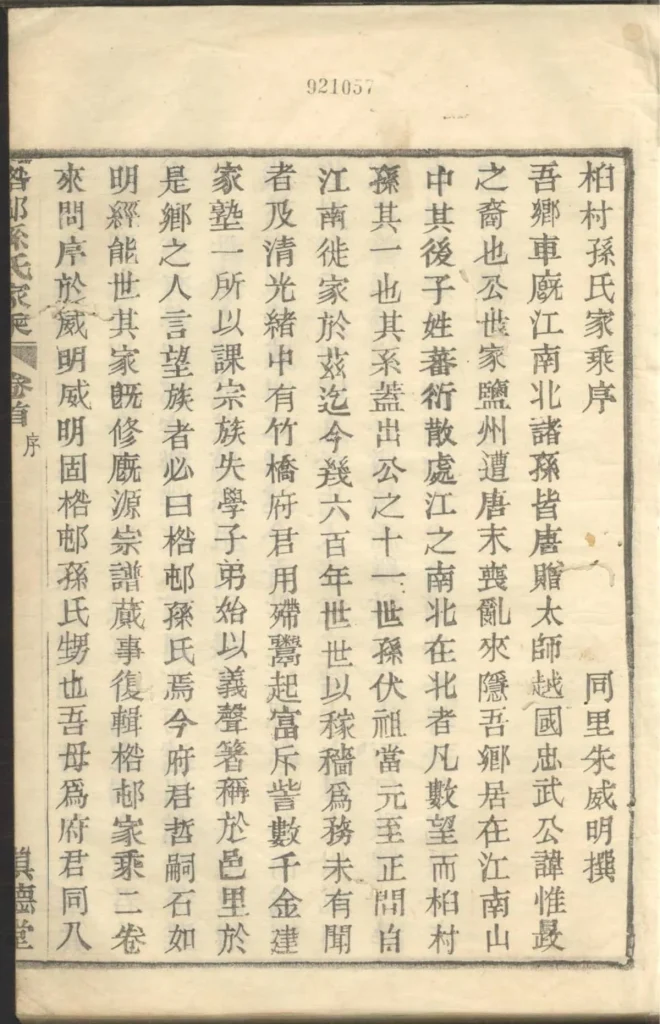 921057
桕村孫氏家乘序
同里朱威明撰
吾鄉車廐江南北諸孫皆唐贈太師越國忠武公諱惟晸
之裔也公世家鹽州遭唐末喪亂來隱吾鄉居在江南山
中其後子姓蕃衍散處江之南北在北者凡數望而桕村
孫其一也其系蓋出公之十一世孫伏祖當元至正間自
江南徙家於茲迄今幾六百年世世以稼穡為務未有聞
者及清光緒中有竹橋府君用殢鬻起富斥訾數千金建
家塾一所以課宗族失學子弟始以義聲箸稱於邑里於
是鄉之人言望族者必曰桰邨孫氏焉今府君哲嗣石如
明經能世其家旣修廐源宗譜蕆事復輯桰邨家乘二卷
來問序於威明威明固桰邨孫氏甥也吾母爲府君同八
邨孫氏家乘
卷首
序
眞德堂